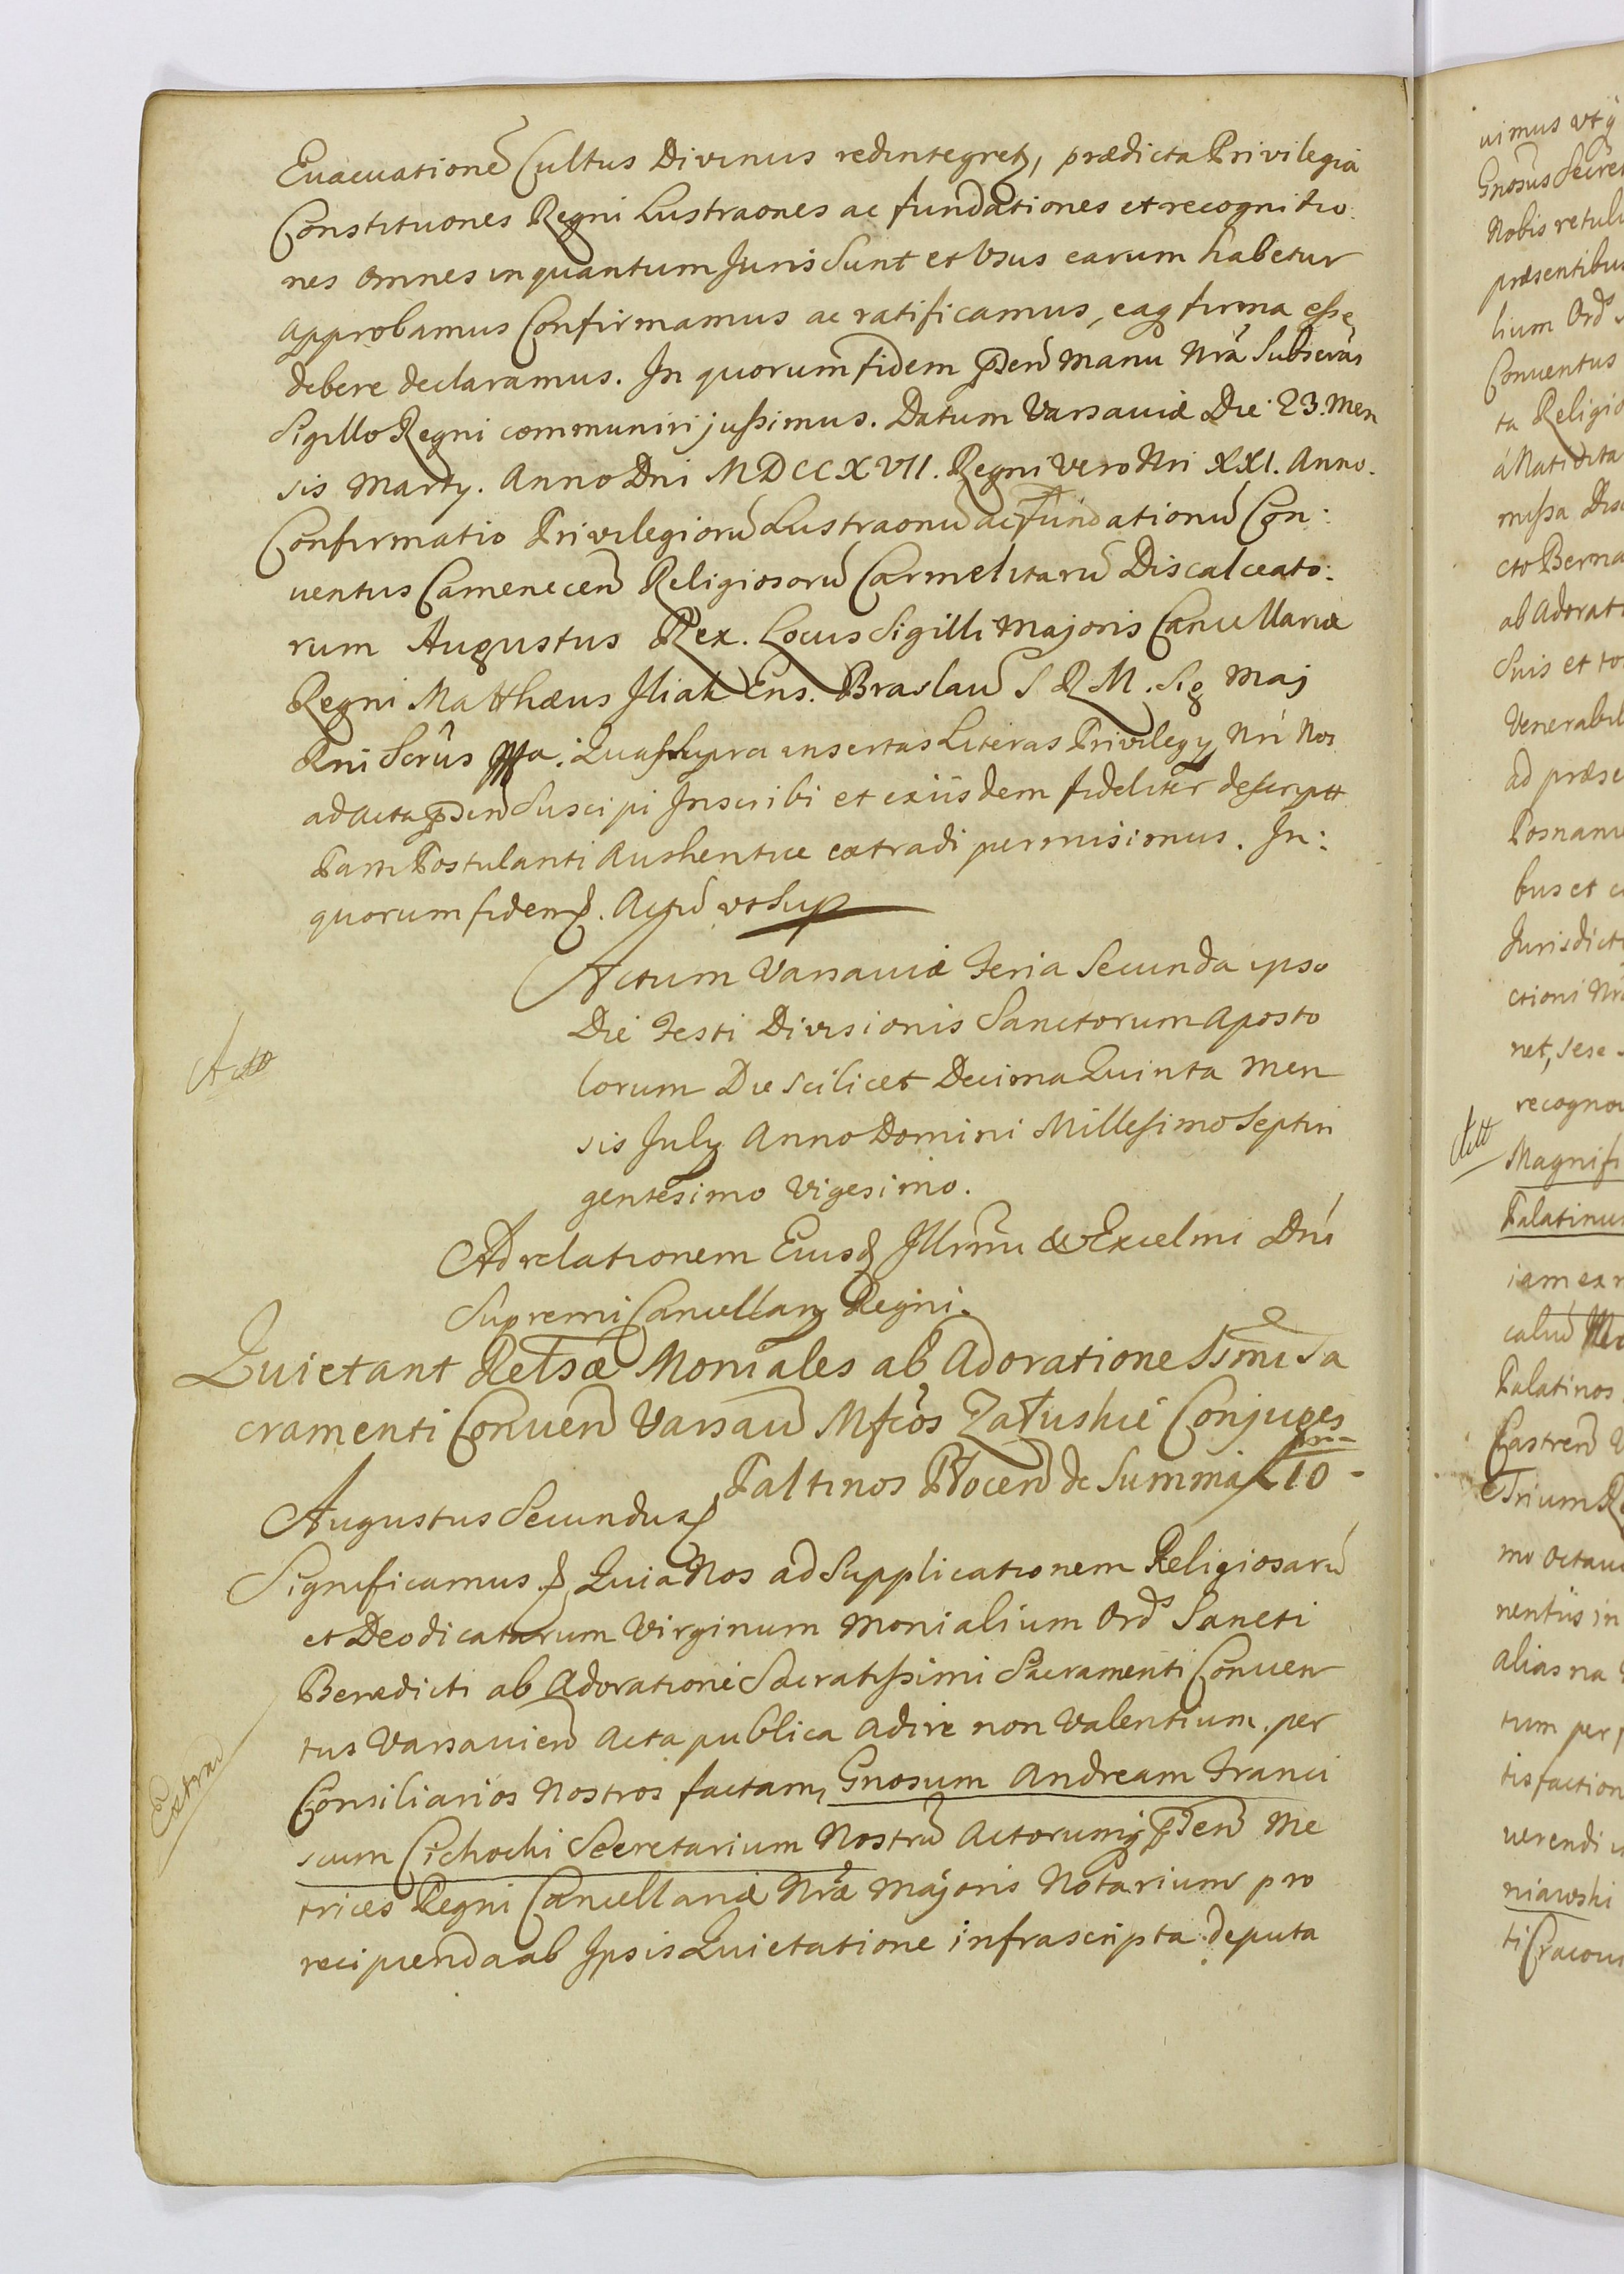 Evacuatione Cultus Divinus redintegretz, prædicta Privilegia
Constituones Regni Lustraones ac fundationes et recognitio
nes omnes inquantum Juris Sunt et Usus earum habetur
Approbamus Confirmamus ac ratificamus, eaq firma esse
debere declaramus. In quorum fidem pñten manu Nrã Subscrãs
Sigillo Regni communiri jussimus. Datum Varsaviæ Die 23. Men
sis Marty. Anno Dni MDCCXVII. Regni Vero Nri XXI. Anno.
Confirmatio Privilegiorũ Lustraonũ ac fundationũ Con:
ventus Camenecen Religiosorũ Carmelitarũ Discalceato:
rum Augustus Rex. Locus Sigilli Majoris Cancellariæ
Regni Matthæus Iliak Ens. Braslav S R M. Sig Maj
Rni Scrũs Quas supra insertas Literas Privilegy Nri Nos
ad Acta pñten Suscipi Inscribi et exiisdem fideliter descriptt
Pam Postulanti Authentice extradi permisimus. In:
quorum fidem. Actũ vt Sup
Actum Varsaviæ Feria Secunda ipso
Die Festi Divisionis Sanctorum Aposto
lorum Die scilicet Decima Quinta Men
sis July Anno Domini Millesimo Septin
gentesimo Vigesimo.
Actt
Ad relationem Eiusd Illrmi & Excelmi Dni
Supremi Cancellary Regni.
Quietant Relsæ Moniales ab Adoratione Ssmi Sa
cramenti Conven Varsav Mfcõs Załuskie Conjuges
Paltinos Płocen de Summa 10 -
Augustus Secundus
Significamus Quia Nos ad Supplicationem Religiosarũ
et Deo dicatarum Virginum Monialium Ord Sancti
Benedicti ab Adoratione Sacratissimi Sacramenti Conven
tus Varsavien Acta publica adire non Valentium per
Consiliarios Nostros factam, Gnosum Andream Franci
scum Cichocki Secretarium Nostrũ Actorumq pñten Me
trices Regni Cancellariæ Nræ Majoris Notarium pro
recipienda ab Ipsis Quietatione infrascripta deputa
Extrad
uimus vt
Gnosus Secre
Nobis retuli
præsentibus
lium Ord
Conventus
ta Religio
missa
cto Berna
ab Adorat
Suis et
Venerabil
ad præse
Posnani
bus et
Jurisdict
ctioni Nrã
net, sese
recogno
Actt
Magnifi
Palatinu
iam ex
Palatinos
Castren
Trium
mo Octav
nentiis in
alias na
tum per
tisfaction
verendi
niawski
ti Cracov